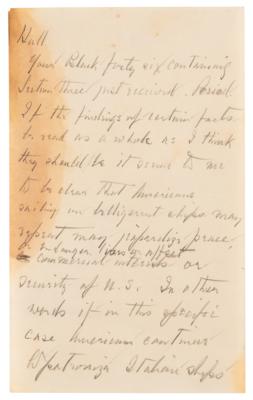 Hull
Your Black forty six containing
Section three just received. Period
If the findings of certain facts
be read as a whole as I think
they should be it seems to me
to be clear that Americans
sailing on belligerent ships may
repeat may jeopardize peace
or endanger lives or affect
commercial interests or
security of U.S. In other
words if in this specific
case Americans continue
to patronize Italian ships